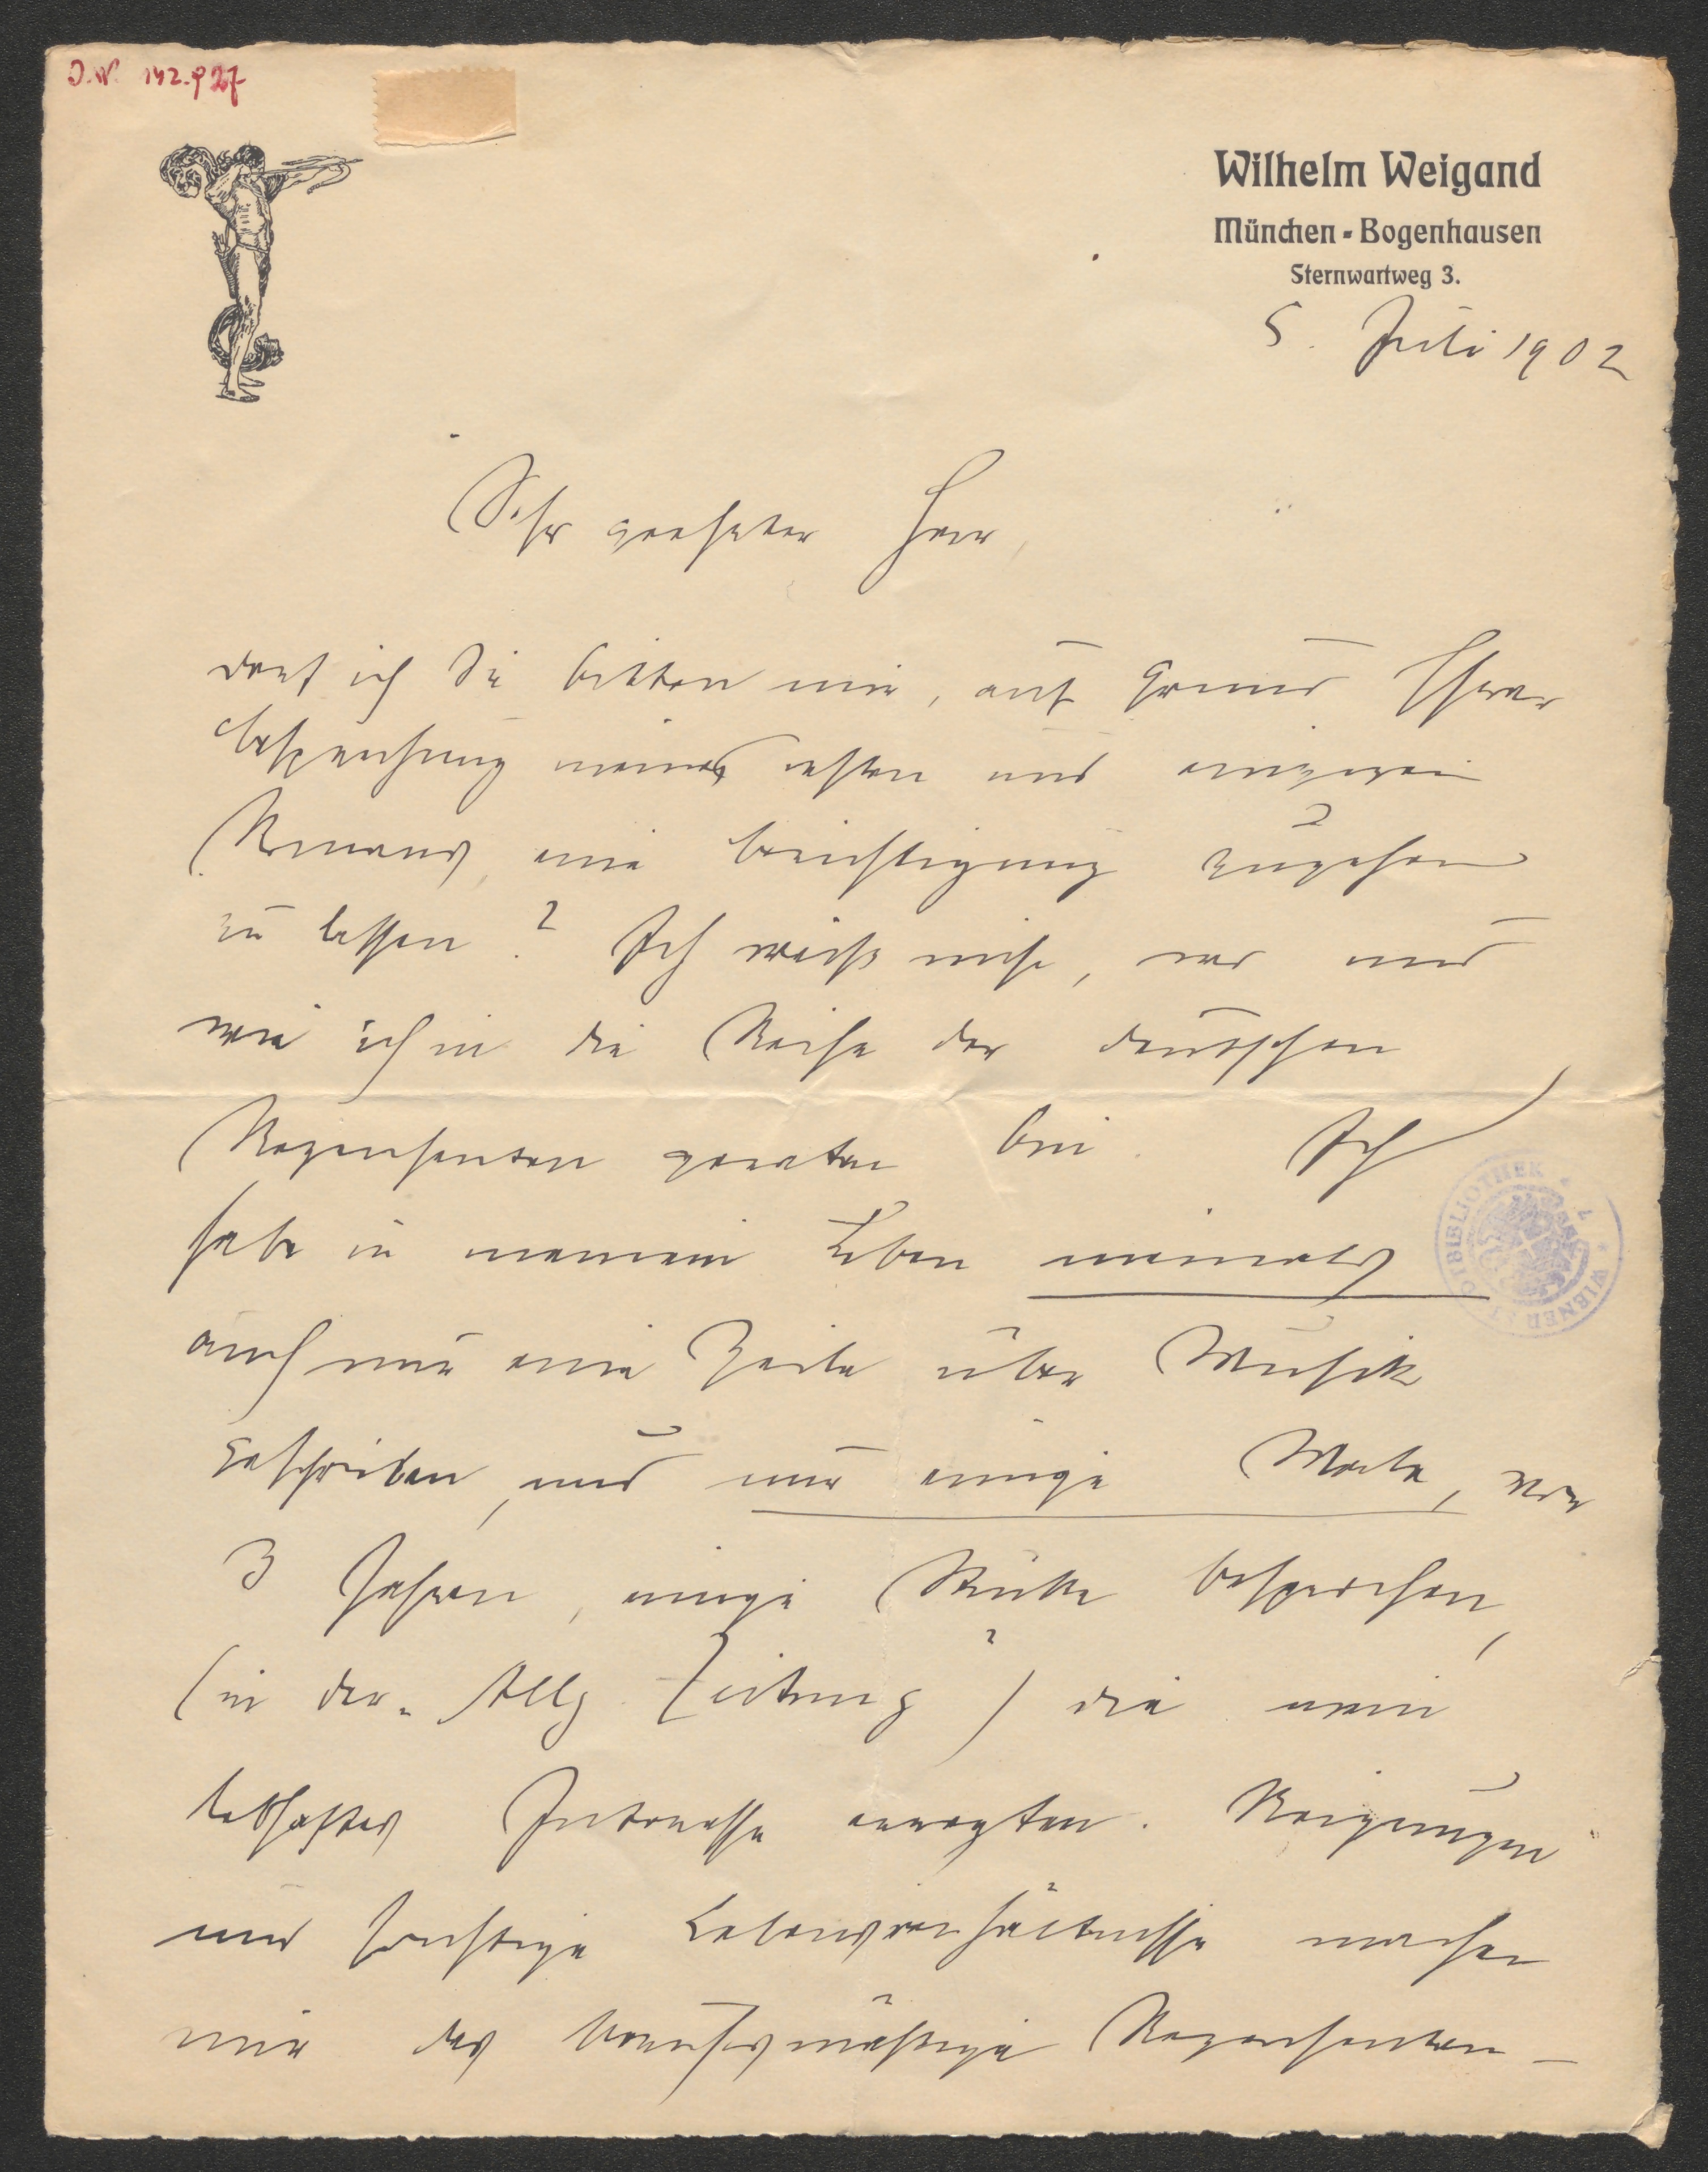 J.N. 142.927
Wilhelm Weigand
München-Bogenhausen
Sternwartweg 3.
5. Juli 1902
Sehr geehrter Herr,
darf ich Sie bitten mir, auf Grund Ihrer
Besprechung meines ersten und einzigen
Romans, eine Berichtigung zugehen
zu lassen? Ich weiß nicht, wo und
wie ich in die Reihe der deutschen
Rezensenten geraten bin. Ich
habe in meinem Leben niemals
auch nur eine Zeile über Musik
geschrieben, und nur einige Male, vor
3 Jahren, einige Stücke besprochen,
(in der "Allg. Zeitung") die mein
lebhaftes Interesse erregten. Neigungen
und sonstige Lebensverhältnisse machen
mir das berufsmäßige Rezensenten-
WIENER STADTBIBLIOTHEK